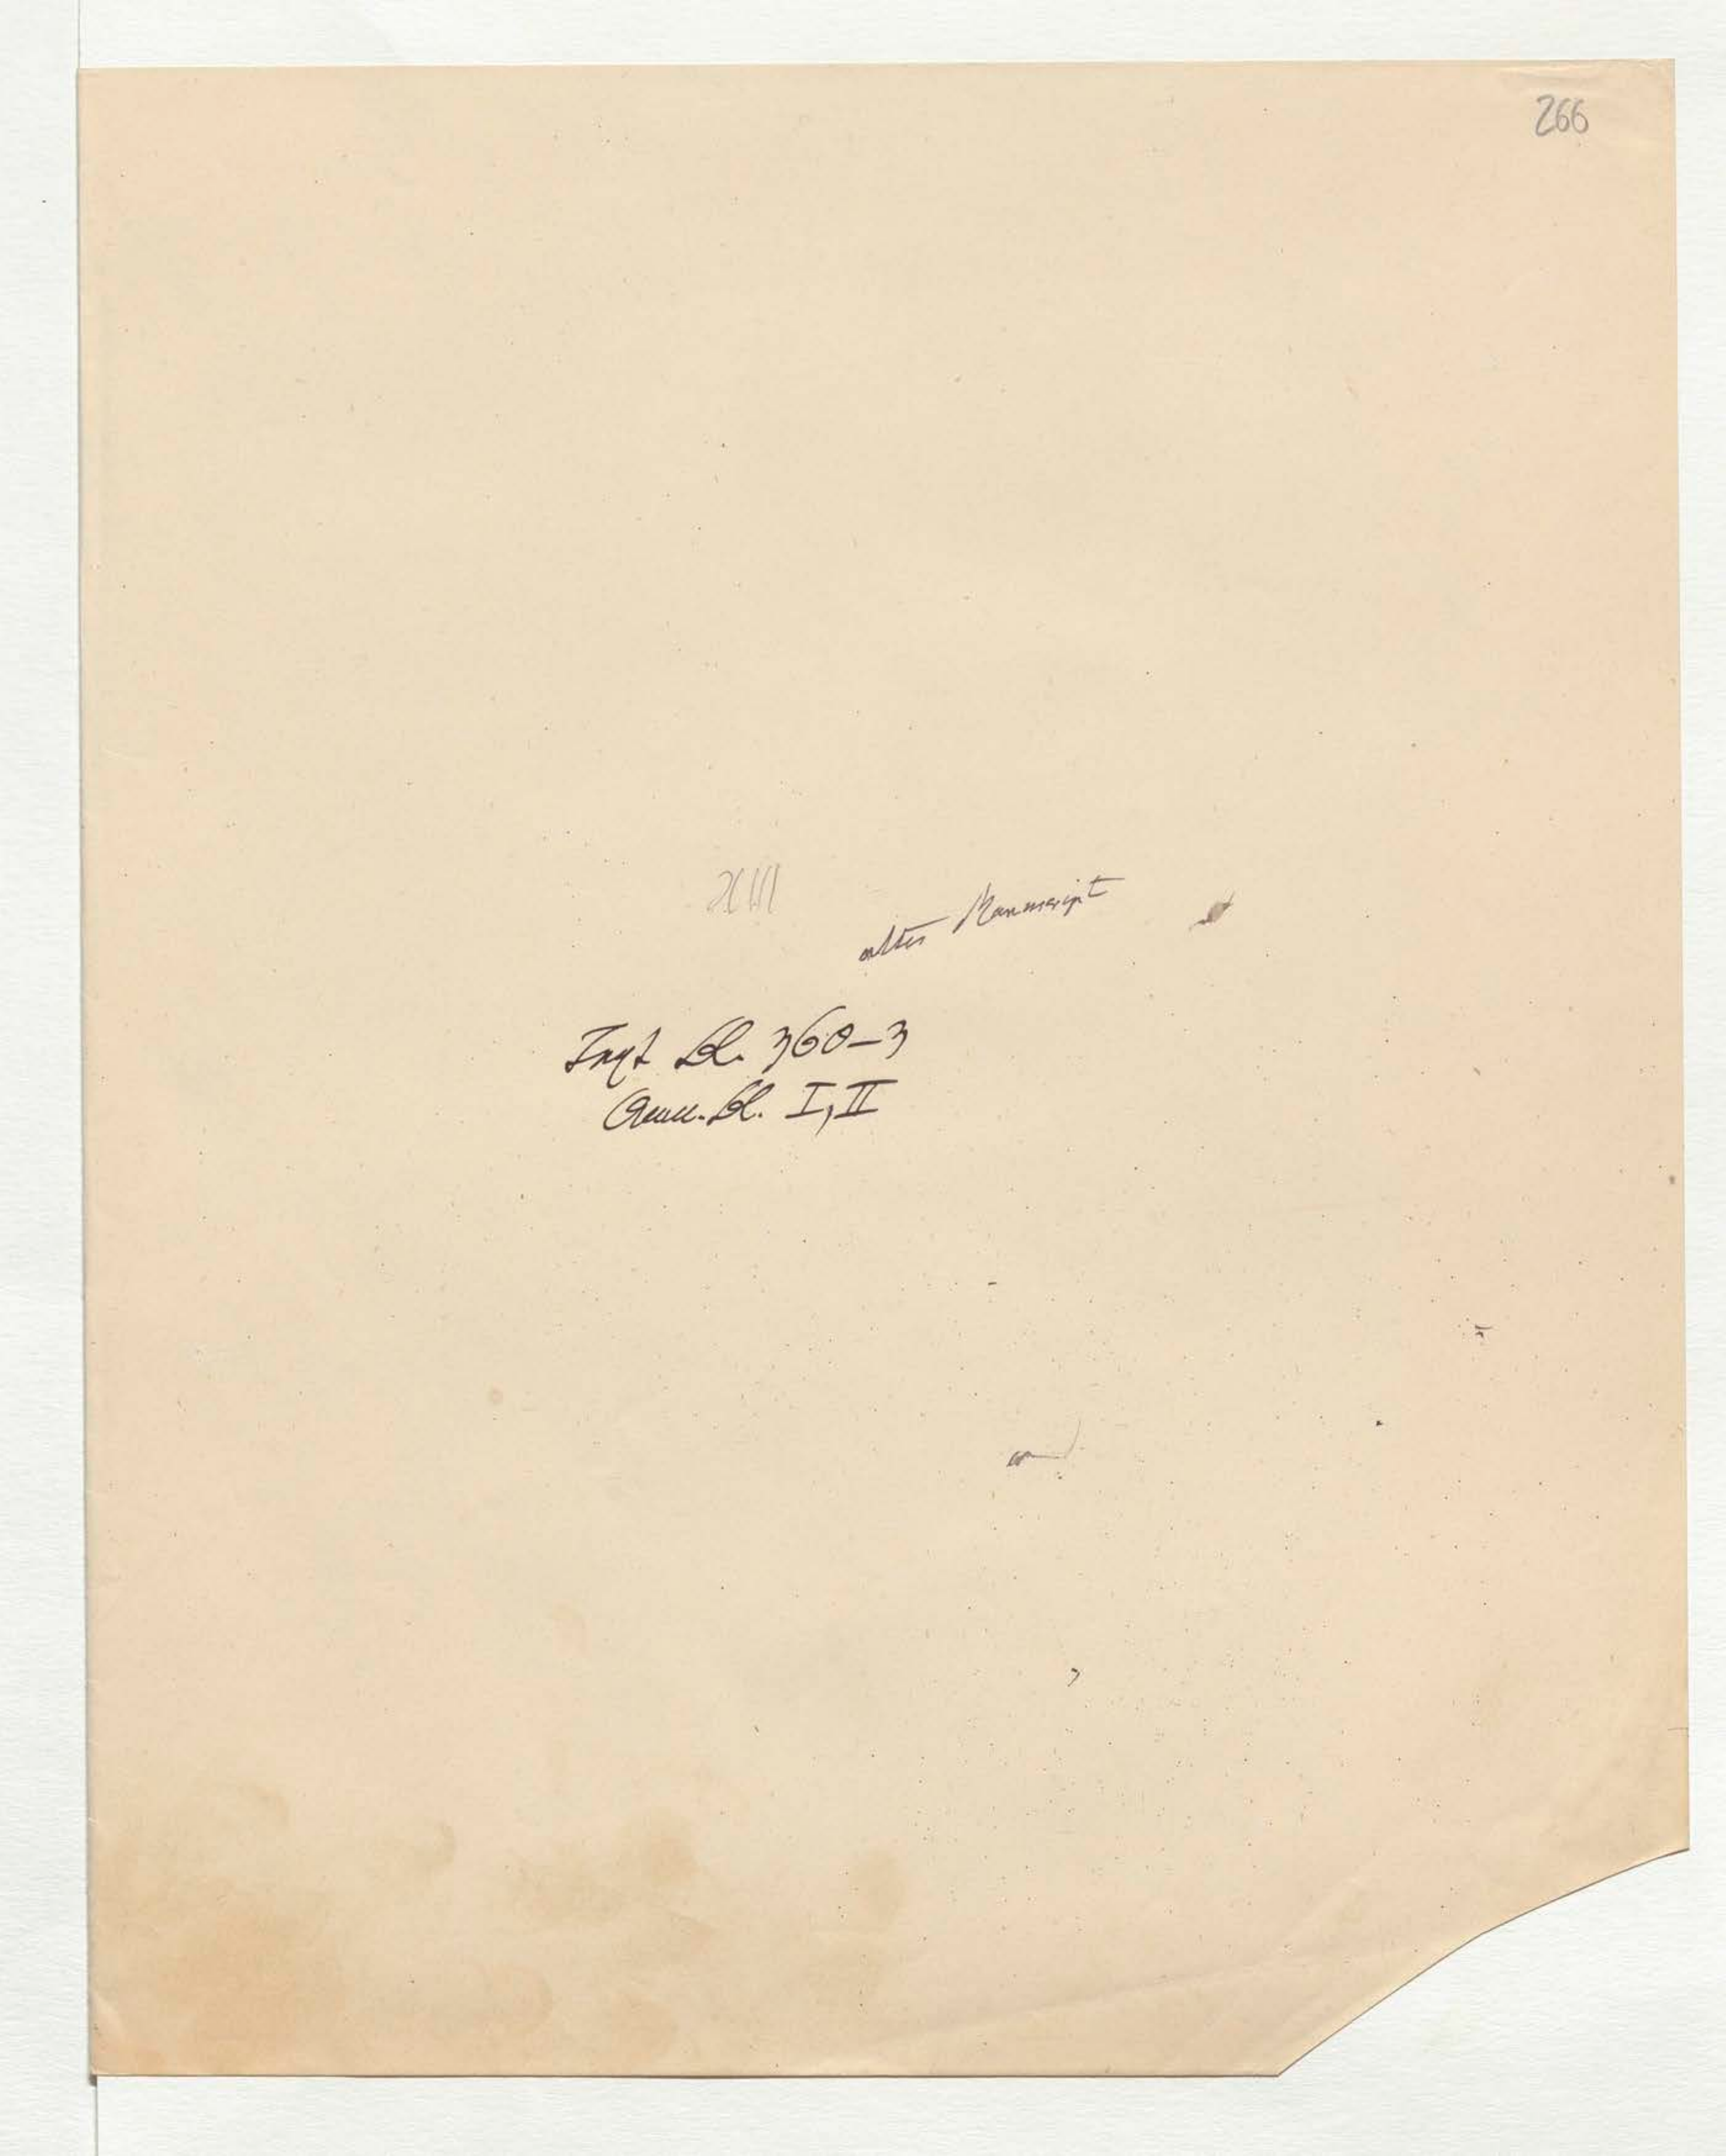 266
XVII
altes Manuscript
Text Bl. 360–3
Anm. Bl. I, II